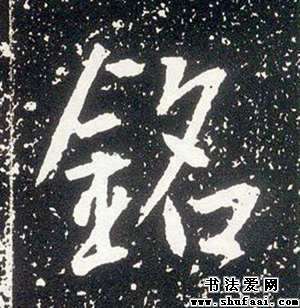 銘
书法爱网
www.shufaai.com